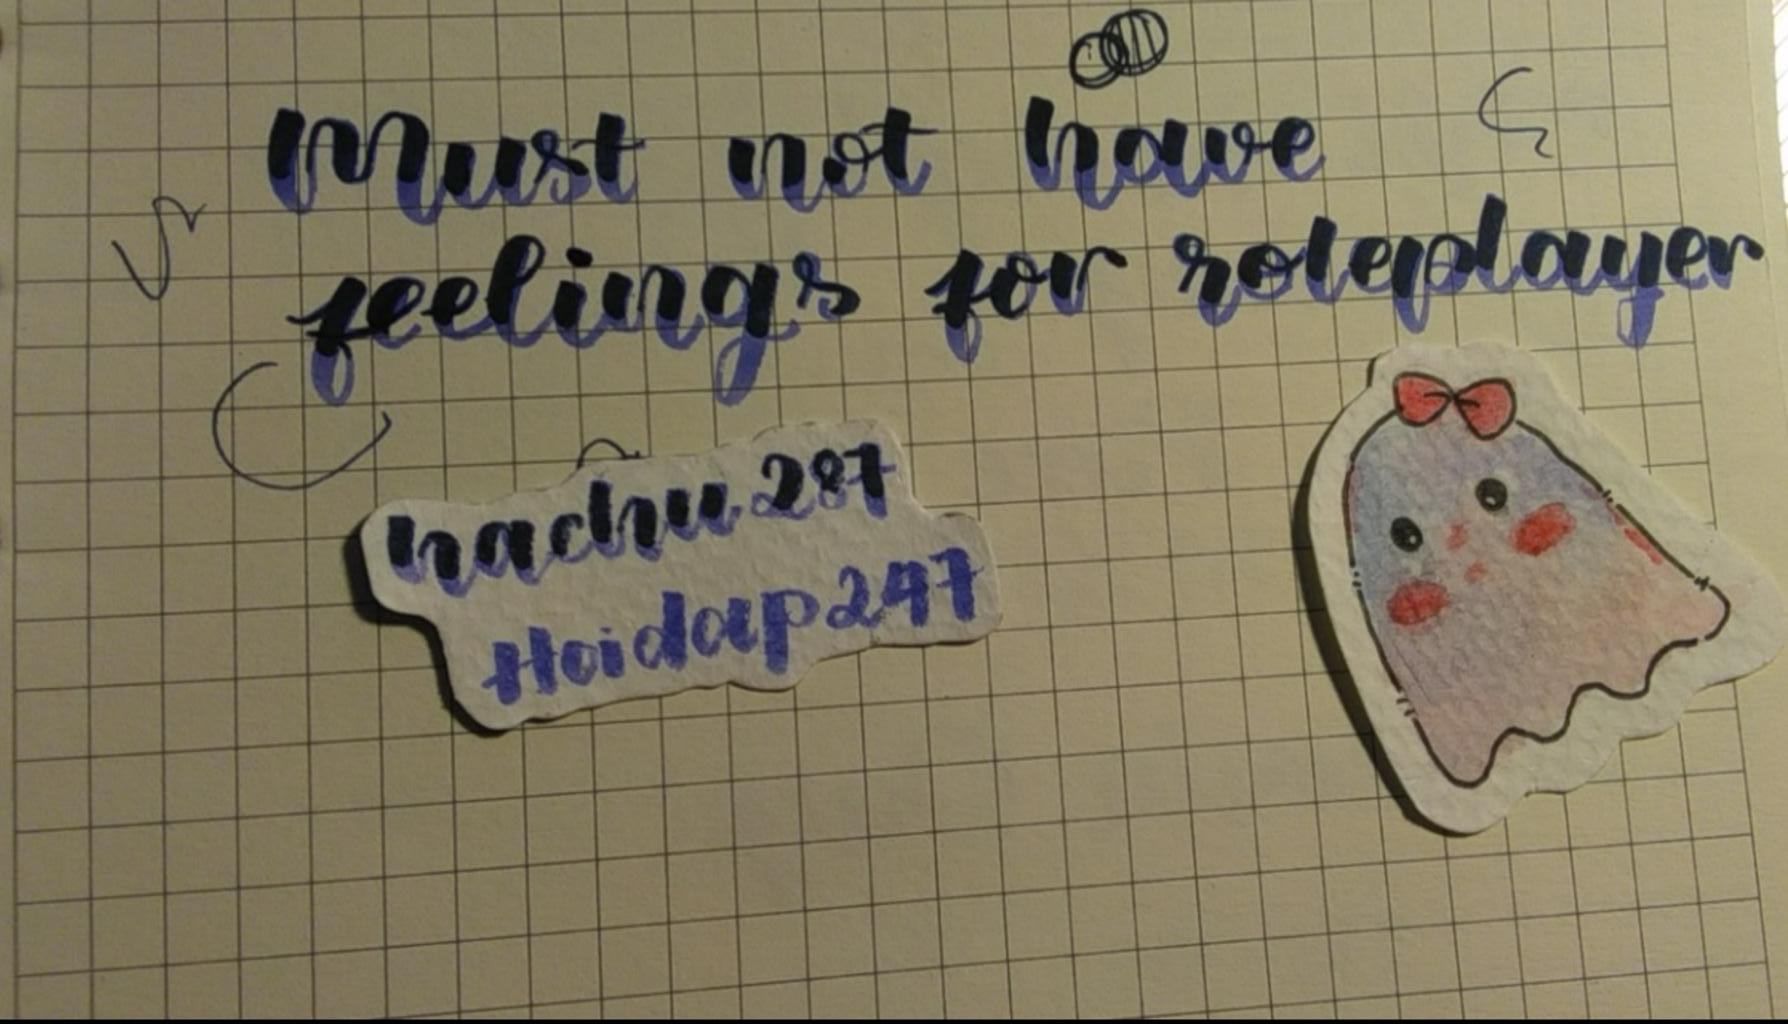 Must not have
feelings for roleplayer
hachu287
Hoidap247